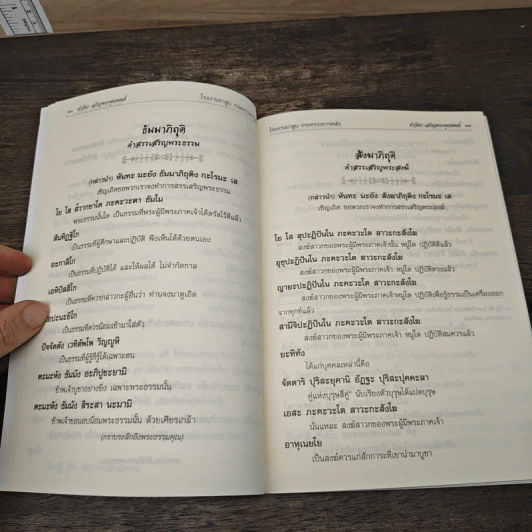 ทำวัตร เจริญพระพุทธมนต์
โรงงานยาสูบ กระทรวงการคลัง
ธัมมาภิถุติ
คำสรรเสริญพระธรรม
(กล่าวนำ) หันทะ มะยัง ธัมมาภิถุติง กะโรมะ เส
เชิญเถิด ขอพวกเราจงทำการสรรเสริญพระธรรม
โย โส ส๎วากขาโต ภะคะวะตา ธัมโม
พระธรรมนั้นใด เป็นธรรมที่พระผู้มีพระภาคเจ้าได้ตรัสไว้ดีแล้ว
สันทิฏฐิโก
เป็นธรรมที่ผู้ศึกษาและปฏิบัติ พึงเห็นได้ด้วยตนเอง
อะกาลิโก
เป็นธรรมที่ปฏิบัติได้ และให้ผลได้ ไม่จำกัดกาล
เอหิปัสสิโก
เป็นธรรมที่ควรกล่าวกะผู้อื่นว่า ท่านจงมาดูเถิด
เป็นธรรมที่ควรน้อมเข้ามาใส่ตัว
ปัจจัตตัง เวทิตัพโพ วิญญูหิ
เป็นธรรมที่ผู้รู้ก็รู้ได้เฉพาะตน
ตะมะหัง ธัมมัง อะภิปูชะยามิ
ข้าพเจ้าบูชาอย่างยิ่ง เฉพาะพระธรรมนั้น
ตะมะหัง ธัมมัง สิระสา นะมามิ
ข้าพเจ้าขอนอบน้อมพระธรรมนั้น ด้วยเศียรเกล้า
(กราบระลึกถึงพระธรรมคุณ)
โรงงานยาสูบ กระทรวงการคลัง
ทำวัตร เจริญพระพุทธมนต์
สังฆาภิถุติ
คำสรรเสริญพระสงฆ์
(กล่าวนำ) หันทะ มะยัง สังฆาภิถุติง กะโรมะ เส
เชิญเถิด ขอพวกเราจงทำการสรรเสริญพระสงฆ์
โย โส สุปะฏิปันโน ภะคะวะโต สาวะกะสังโฆ
สงฆ์สาวกของพระผู้มีพระภาคเจ้านั้น หมู่ใด ปฏิบัติดีแล้ว
อุชุปะฏิปันโน ภะคะวะโต สาวะกะสังโฆ
สงฆ์สาวกของพระผู้มีพระภาคเจ้า หมู่ใด ปฏิบัติตรงแล้ว
ญายะปะฏิปันโน ภะคะวะโต สาวะกะสังโฆ
สงฆ์สาวกของพระผู้มีพระภาคเจ้า หมู่ใด ปฏิบัติเพื่อรู้ธรรมเป็นเครื่องออก
จากทุกข์แล้ว
สามีจิปะฏิปันโน ภะคะวะโต สาวะกะสังโฆ
สงฆ์สาวกของพระผู้มีพระภาคเจ้า หมู่ใด ปฏิบัติสมควรแล้ว
ยะทิทัง
ได้แก่บุคคลเหล่านี้คือ
จัตตาริ ปุริสะยุคานิ อัฏฐะ ปุริสะปุคคะลา
คู่แห่งบุรุษสี่คู่ นับเรียงตัวบุรุษได้แปดบุรุษ
เอสะ ภะคะวะโต สาวะกะสังโฆ
นั่นแหละ สงฆ์สาวกของพระผู้มีพระภาคเจ้า
อาหุเนยโย
เป็นสงฆ์ควรแก่สักการะที่เขานำมาบูชา